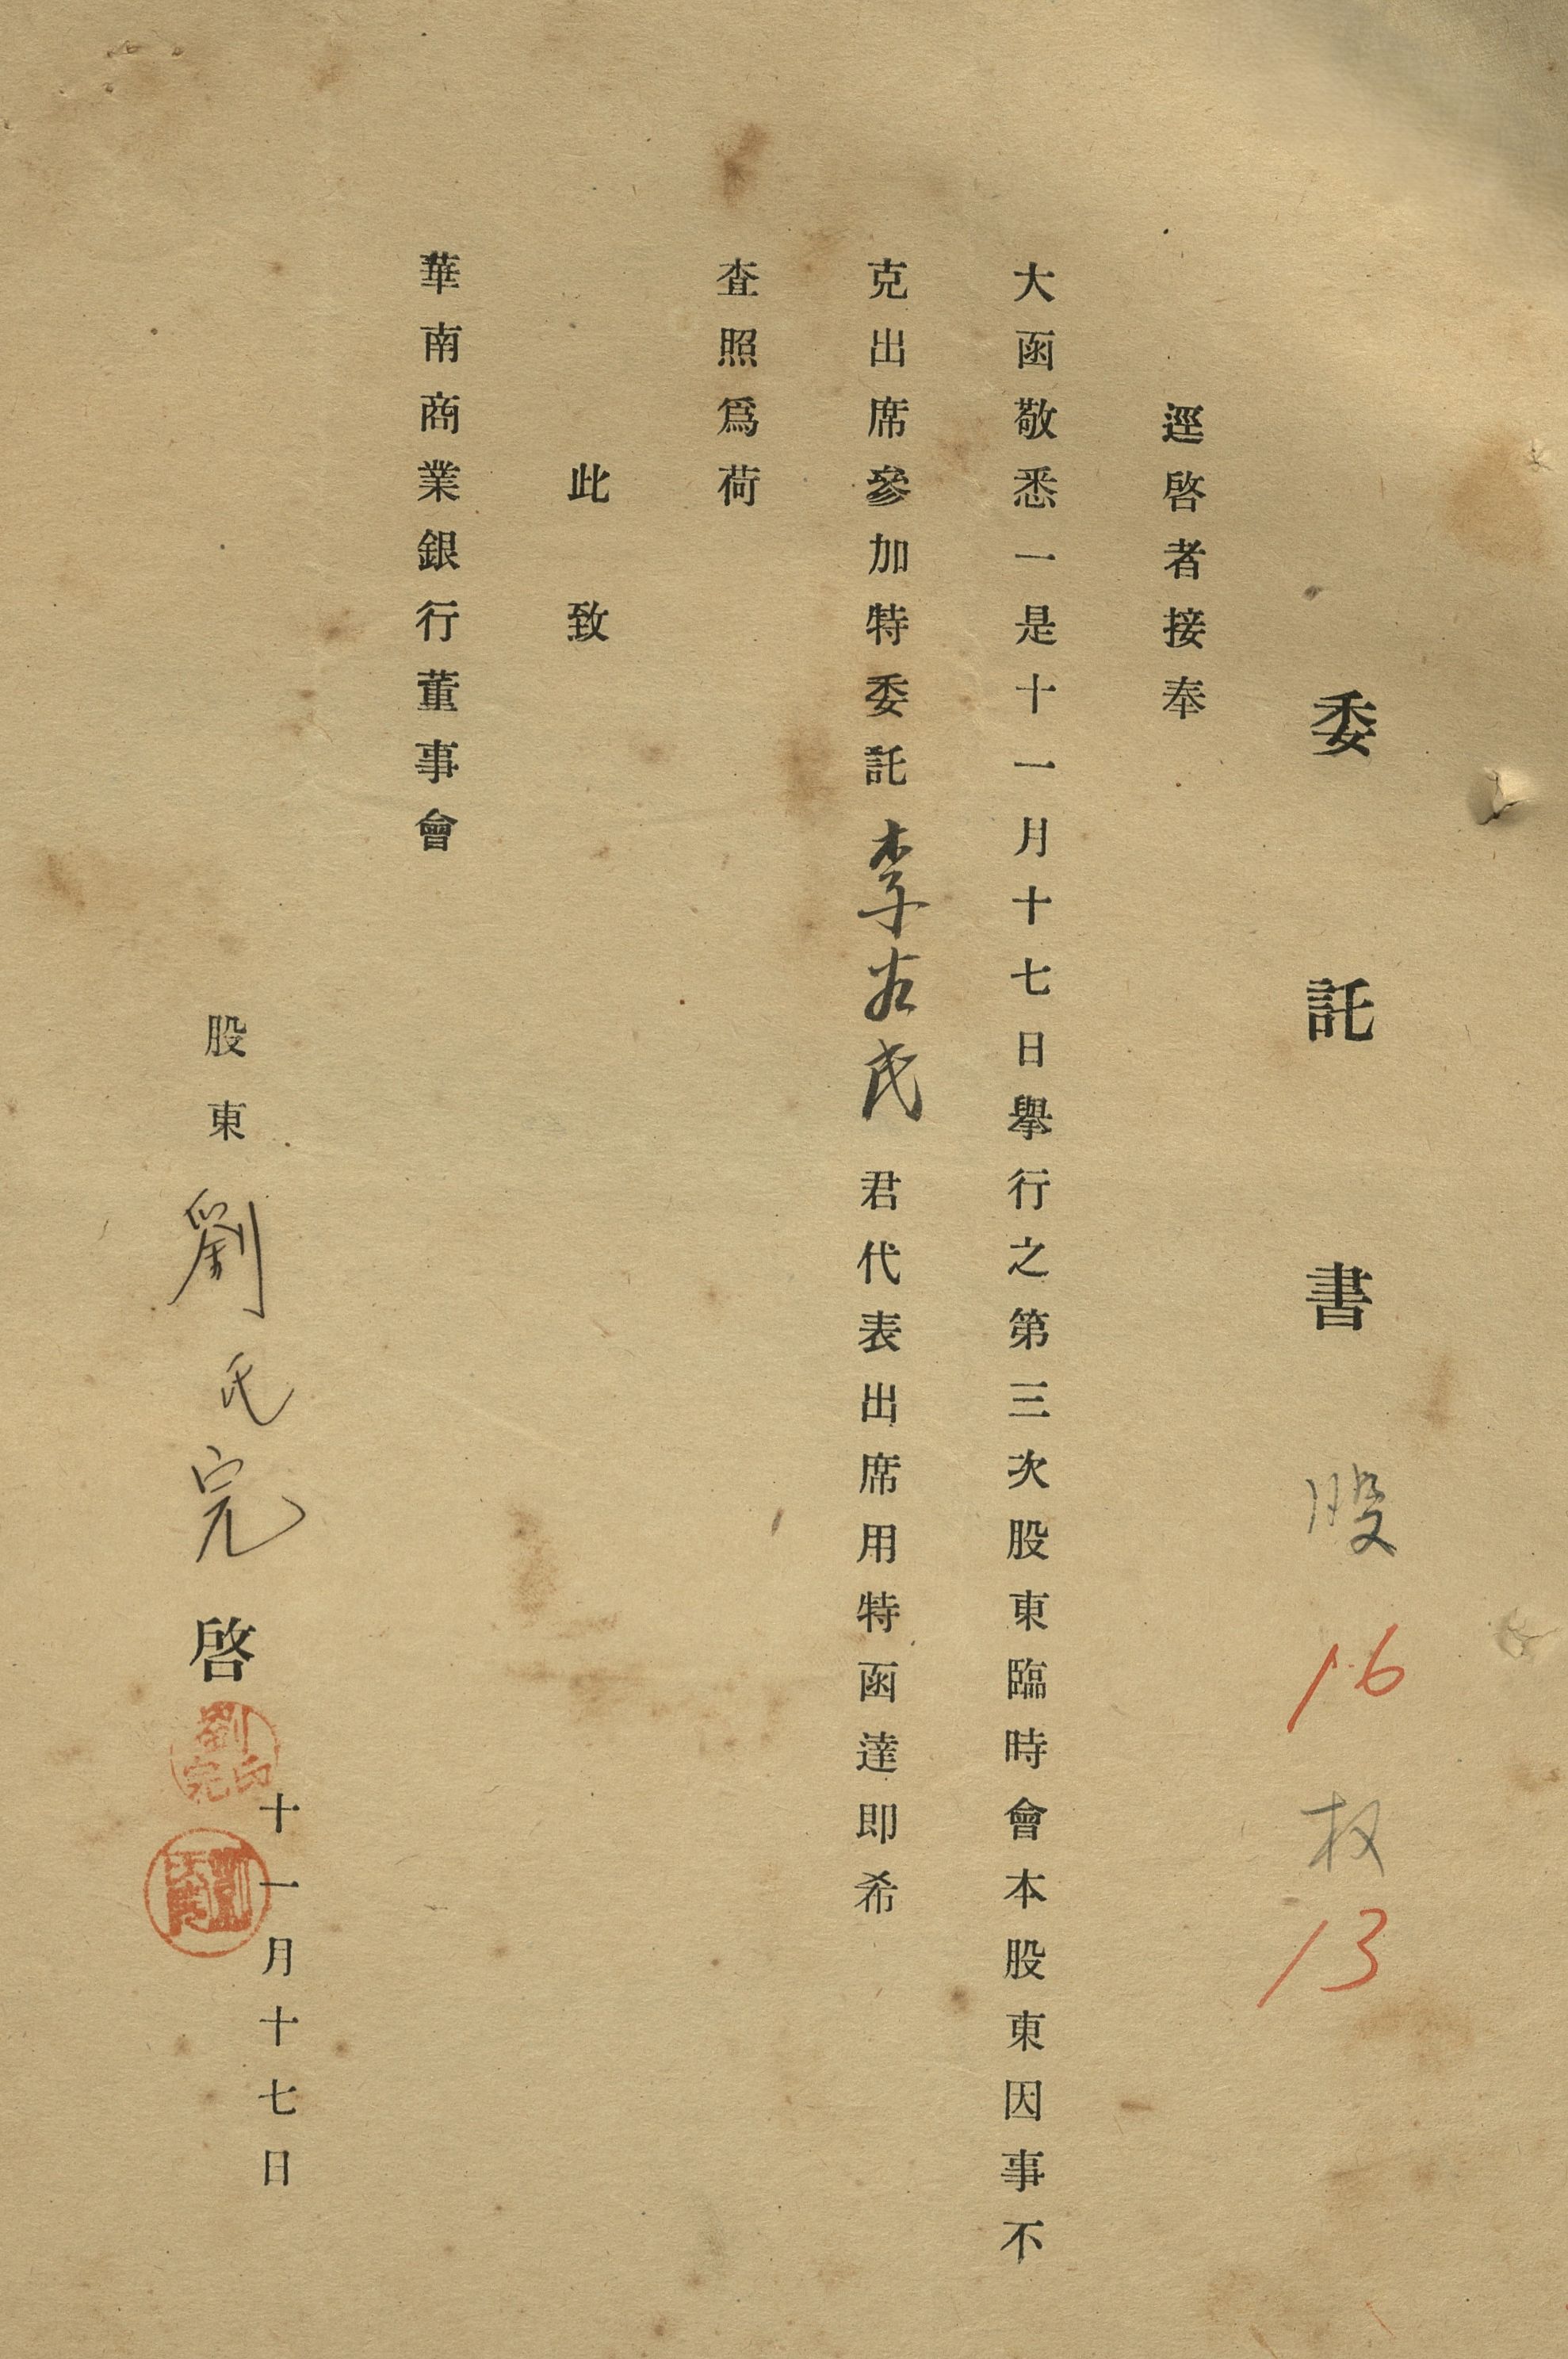 委託書 股 16 权 13
逕啓者接奉
大函敬悉一是十一月十七日擧行之第三次股東臨時會本股東因事不
克出席參加特委託 李 氏 君代表出席用特函達即希
查照爲荷
此致
華南商業銀行董事會
十一月十七日
股東 劉氏完 啓
劉印完